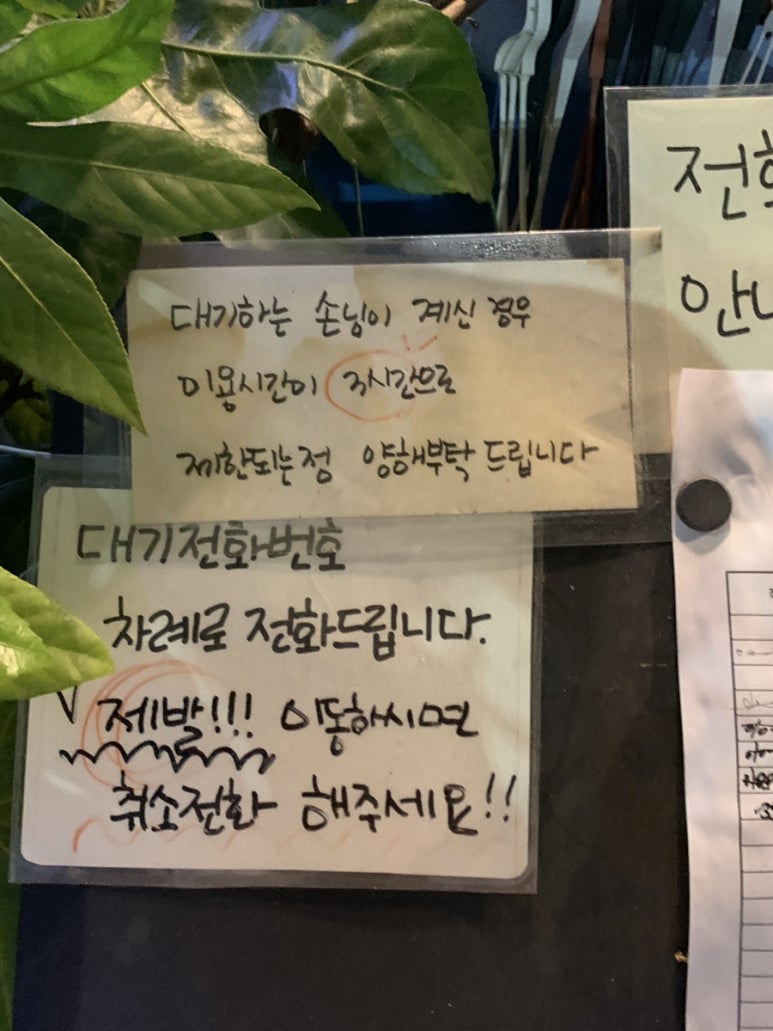 대기하는 손님이 계신 경우
이용시간이 3시간으로
제한되는점 양해부탁 드립니다
대기전화번호
차례로 전화드립니다.
제발!!! 이동하시면
취소전화 해주세요!!
전화
안